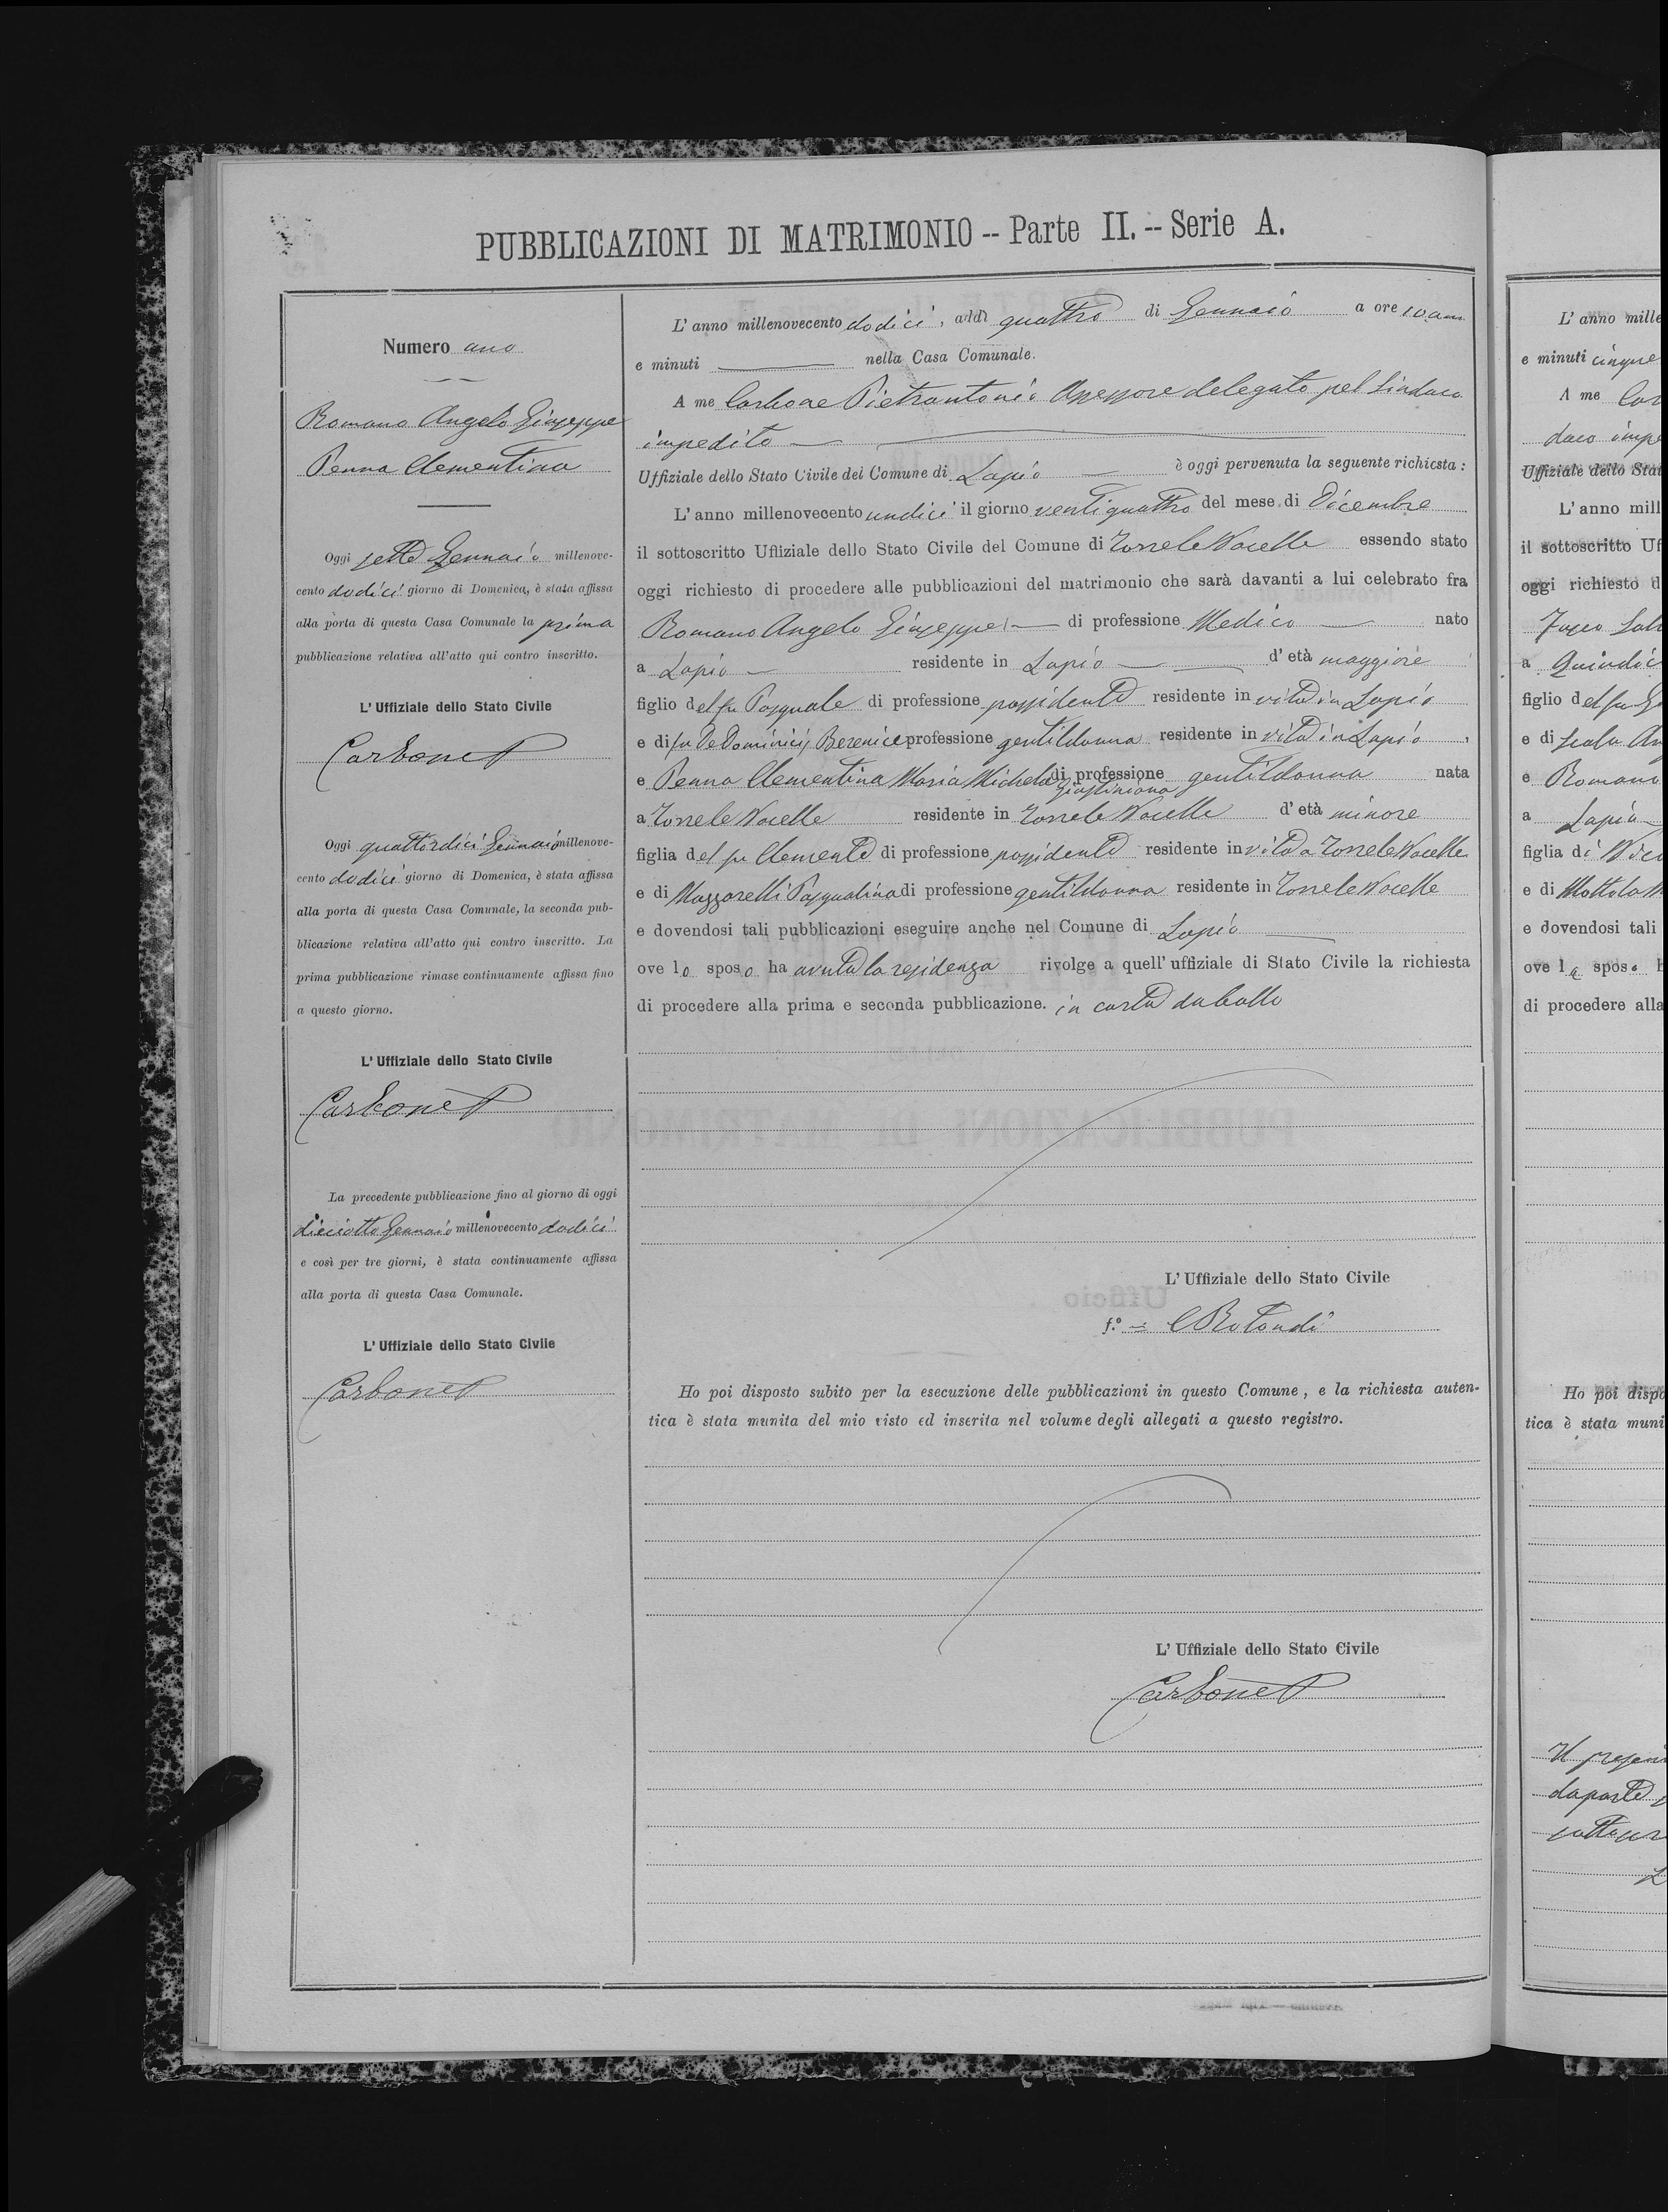 PUBBLICAZIONI DI MATRIMONIO -- Parte II. -- Serie A.
Numero uno
Romano Angelo Giuseppe
Penna Clementina
Oggi sette Gennaio millenove-
cento dodici giorno di Domenica, è stata affissa
alla porta di questa Casa Comunale la prima
pubblicazione relativa all'atto qui contro inscritto.
L' Uffiziale dello Stato Civile
Carbone P
Oggi quattordici Gennaio millenove-
cento dodici giorno di Domenica, è stata affissa
alla porta di questa Casa Comunale, la seconda pub-
blicazione relativa all'atto qui contro inscritto. La
prima pubblicazione rimase continuamente affissa fino
a questo giorno.
L' Uffiziale dello Stato Civile
Carbone P
La precedente pubblicazione fino al giorno di oggi
dieciotto Gennaio millenovecento dodici
e così per tre giorni, è stata continuamente affissa
alla porta di questa Casa Comunale.
L' Uffiziale dello Stato Civile
Carbone P
L' anno millenovecento dodici, addì quattro di Gennaio a ore 10 am
e minuti nella Casa Comunale.
A me Carbone Pietrantonio Assessore delegato pel Sindaco
impedito
Uffiziale dello Stato Civile del Comune di Lapio è oggi pervenuta la seguente richiesta:
L' anno millenovecento undici il giorno ventiquattro del mese di Dicembre
il sottoscritto Uffiziale dello Stato Civile del Comune di Torre le Nocelle essendo stato
oggi richiesto di procedere alle pubblicazioni del matrimonio che sarà davanti a lui celebrato fra
Romano Angelo Giuseppe di professione Medico nato
a Lapio residente in Lapio d' età maggiore
figlio del fu Pasquale di professione possidente residente in vita in Lapio
e di fu De Dominicis Berenice professione gentildonna residente in vita in Lapio,
e Penna Clementina Maria Michela Giustiniana di professione gentildonna nata
a Torre le Nocelle residente in Torre le Nocelle d' età minore
figlia del fu Clemente di professione possidente residente in vita a Torre le Nocelle
e di Mazzarelli Pasqualina di professione gentildonna residente in Torre le Nocelle
e dovendosi tali pubblicazioni eseguire anche nel Comune di Lapio
ove lo sposo ha avuta la residenza rivolge a quell' uffiziale di Stato Civile la richiesta
di procedere alla prima e seconda pubblicazione. in carta da bollo
L' Uffiziale dello Stato Civile
f.º = C Rotondi
Ho poi disposto subito per la esecuzione delle pubblicazioni in questo Comune, e la richiesta auten-
tica è stata munita del mio visto ed inserita nel volume degli allegati a questo registro.
L' Uffiziale dello Stato Civile
Carbone P
L' anno mille
e minuti cinque
A me Car
daco impe
Uffiziale dello Stat
L' anno mill
il sottoscritto Uf
oggi richiesto d
a Quindic
figlio del fu
e di
e Romano
a Lapio
figlia di Nico
e di
e dovendosi tali
ove la sposa h
di procedere alla
Ho poi dispo
tica è stata muni
Il presen
da parte